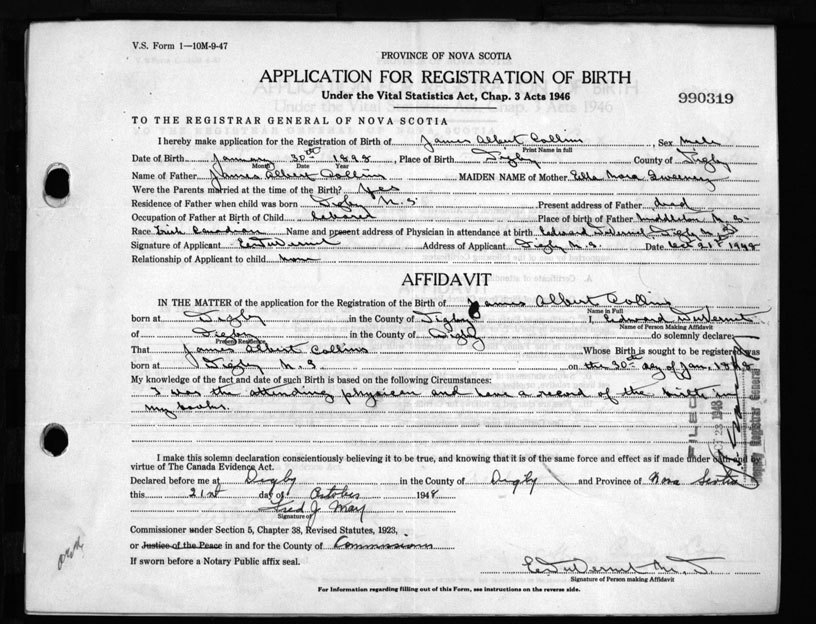 V.S. Form 1—10M-9-47
PROVINCE OF NOVA SCOTIA
APPLICATION FOR REGISTRATION OF BIRTH
Under the Vital Statistics Act, Chap. 3 Acts 1946
990319
TO THE REGISTRAR GENERAL OF NOVA SCOTIA
I hereby make application for the Registration of Birth of James Albert Collins, Sex Male
Print Name in full
Date of Birth January 30th 1898, Place of Birth Digby County of Digby
Month Date Year
Name of Father James Albert Collins MAIDEN NAME of Mother Ella Nora Sweeney
Were the Parents married at the time of the Birth? Yes
Residence of Father when child was born Digby N.S. Present address of Father dead
Occupation of Father at Birth of Child Laborer Place of birth of Father Middleton N.S.
Race Irish Canadian Name and present address of Physician in attendance at birth Edward DuVernet Digby N.S.
Signature of Applicant DuVernet Address of Applicant Digby N.S. Date Oct 21st 1948
Relationship of Applicant to child none
AFFIDAVIT
IN THE MATTER of the application for the Registration of Birth of James Albert Collins
Name in Full
born at Digby in the County of Digby I, Edward DuVernet
Name of Person Making Affidavit
of Digby in the County of Digby do solemnly declare:
Present Residence
That James Albert Collins Whose Birth is sought to be registered was
born at Digby N.S. on the 30th day of Jan, 1898
My knowledge of the fact and date of such Birth is based on the following Circumstances:
I was the attending physician and have a record of the birth in
my books.
FILED
OCT 23 1948
Deputy Registrar General
I make this solemn declaration conscientiously believing it to be true, and knowing that it is of the same force and effect as if made under oath and by
virtue of The Canada Evidence Act.
Declared before me at Digby in the County of Digby and Province of Nova Scotia
this 21st day of October 1948
Fred J. May
Signature of
Commissioner under Section 5, Chapter 38, Revised Statutes, 1923,
or Justice of the Peace in and for the County of Commissioner
If sworn before a Notary Public affix seal.
DuVernet M.D.
Signature of Person making Affidavit
For Information regarding filling out of this Form, see instructions on the reverse side.